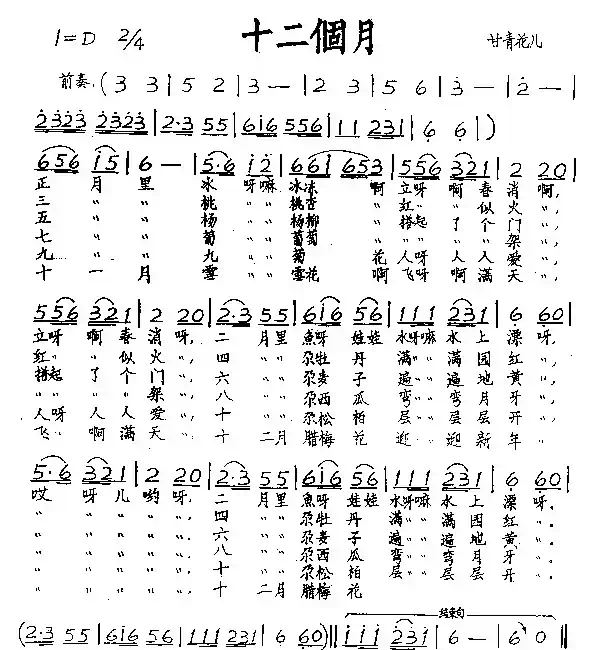 1=D 2/4 十二個月 甘青花儿
前奏: (3 3 | 5 2 | 3 — | 2 3 | 5 6 | 3 — | 2 — |
2323 2323 | 2·3 55 | 616 556 | 111 231 | 6 6 )
656 15 | 6 — | 5·6 12 | 661 653 | 5·6 321 | 2 20 |
正 月 里 冰 呀嘛 冰冻 啊 立呀 啊 春 消 啊,
三 〃 〃 桃 〃 桃杏 〃 红〃 〃 似 火 〃,
五 〃 〃 杨 〃 杨柳 〃 搭起 了 个 门 〃,
七 〃 〃 葡 〃 葡葡 〃 〃 〃 〃 架 〃,
九 〃 〃 九 〃 菊 花 人呀 人 人 爱 〃,
十 一 月 雪 〃 雪花 啊 飞呀 啊 满 天 〃,
5·6 321 | 2 20 | 2·3 55 | 616 56 | 111 231 | 6 60 |
立呀 啊 春 消 呀, 二 月里 魚呀 娃娃 水呀嘛 水 上 漂 呀,
红〃 〃 似 火 〃, 四 〃〃 尕牡 丹 满〃〃 满 园 红 〃,
搭起 了 个 门 〃, 六 〃〃 尕麦 子 遍〃〃 遍 地 黄 〃,
〃 〃 〃 架 〃, 八 〃〃 尕西 瓜 弯〃〃 弯 月 牙 〃,
人呀 人 人 爱 〃, 十 〃〃 尕松 柏 层〃〃 层 层 开 〃,
飞〃 啊 满 天 〃, 十 二月 腊梅 花 迎〃〃 迎 新 年 〃,
5·6 321 | 2 20 | 2·3 55 | 616 56 | 111 231 | 6 60 |
哎 呀 儿 哟 呀, 二 月里 魚呀 娃娃 水呀嘛 水 上 漂 呀.
〃 〃 〃 〃 〃, 四 〃〃 尕牡 丹 满〃〃 满 园 红 〃.
〃 〃 〃 〃 〃, 六 〃〃 尕麦 子 遍〃〃 遍 地 黄 〃.
〃 〃 〃 〃 〃, 八 〃〃 尕西 瓜 弯〃〃 弯 月 牙 〃.
〃 〃 〃 〃 〃, 十 〃〃 尕松 柏 层〃〃 层 层 开 〃.
〃 〃 〃 〃 〃, 十 二月 腊梅 花
结束句
(2·3 55 | 616 56 | 111 231 | 6 60 )‖ 111 231 | 6 — | 6 0 ‖